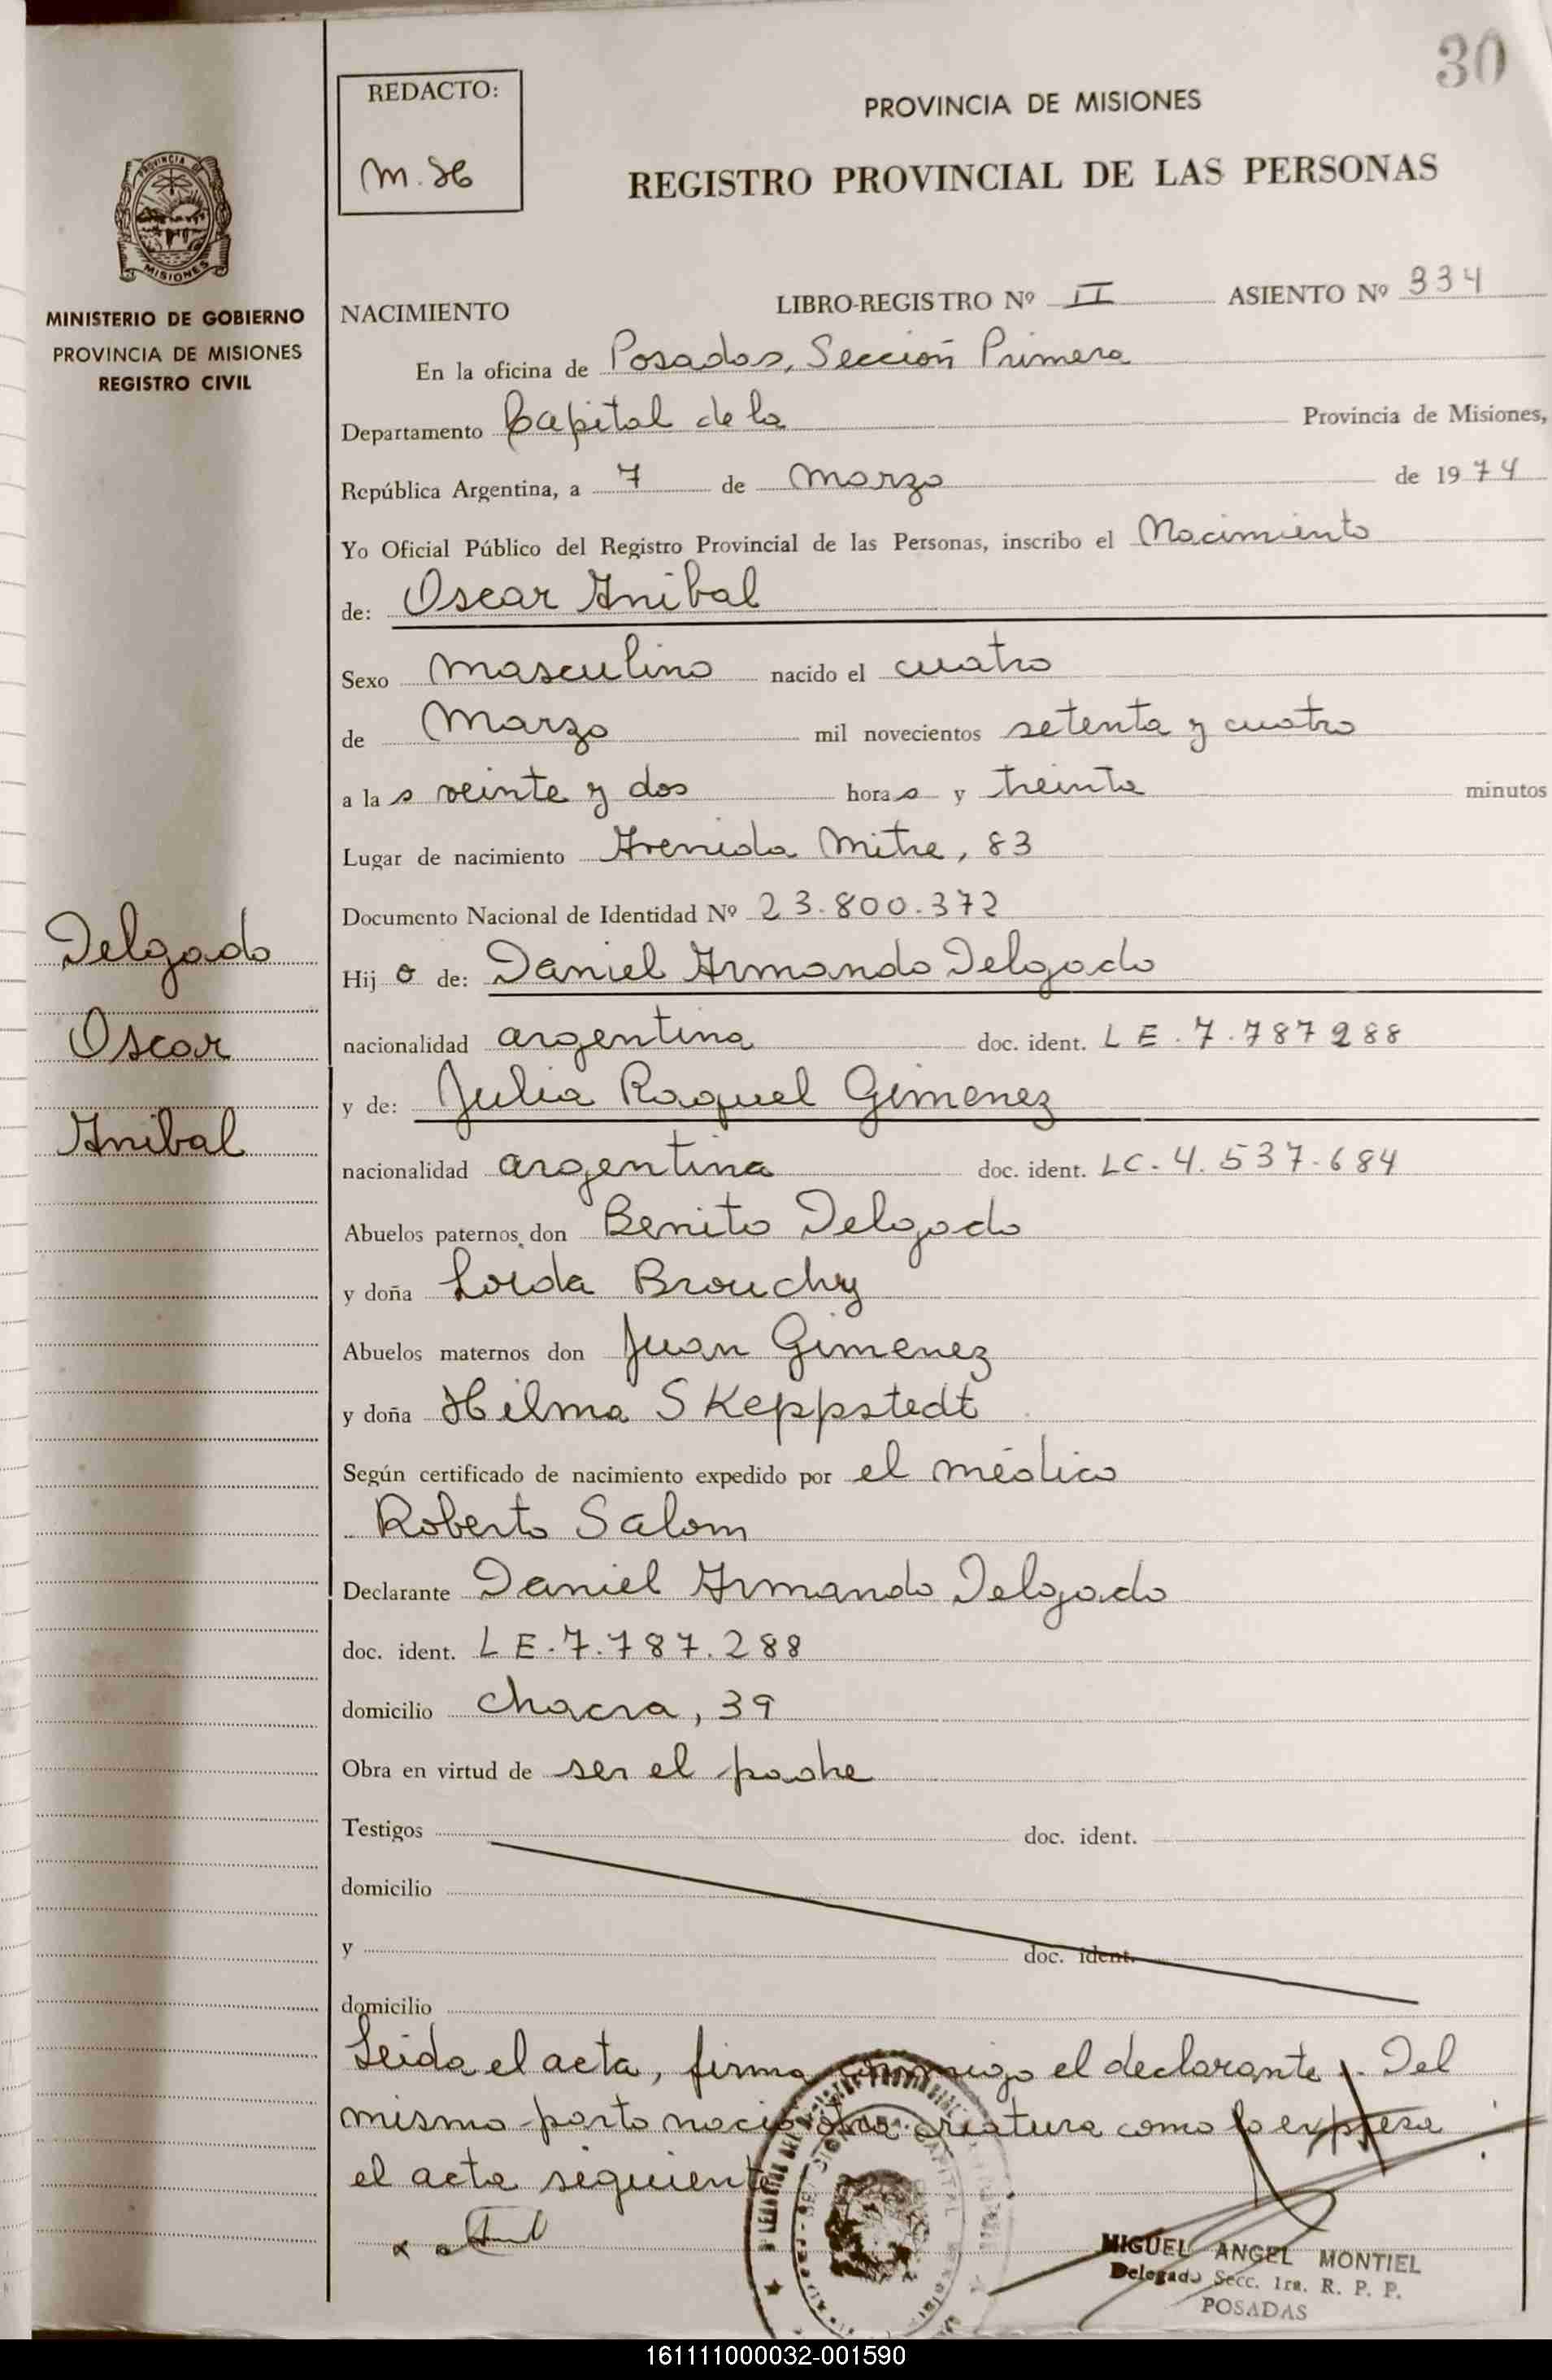 30
REDACTO:
M. H
PROVINCIA DE MISIONES
REGISTRO PROVINCIAL DE LAS PERSONAS
PROVINCIA DE
MISIONES
MINISTERIO DE GOBIERNO
PROVINCIA DE MISIONES
REGISTRO CIVIL
NACIMIENTO LIBRO-REGISTRO Nº II ASIENTO Nº 334
En la oficina de Posadas, Sección Primera
Departamento Capital de la Provincia de Misiones,
República Argentina, a 7 de Marzo de 1974
Yo Oficial Público del Registro Provincial de las Personas, inscribo el Nacimiento
de: Oscar Anibal
Sexo masculino nacido el cuatro
de Marzo mil novecientos setenta y cuatro
a las veinte y dos horas y treinta minutos
Lugar de nacimiento Avenida Mitre, 83
Documento Nacional de Identidad Nº 23.800.372
Delgado
Oscar
Anibal
Hijo de: Daniel Armando Delgado
nacionalidad argentina doc. ident. LE. 7.787288
y de: Julia Raquel Gimenez
nacionalidad argentina doc. ident. LC. 4.537.684
Abuelos paternos don Benito Delgado
y doña Loida Brouchy
Abuelos maternos don Juan Gimenez
y doña Hilma Skeppstedt
Según certificado de nacimiento expedido por el médico
Roberto Salom
Declarante Daniel Armando Delgado
doc. ident. LE. 7.787.288
domicilio chacra, 39
Obra en virtud de ser el padre
Testigos doc. ident.
domicilio
y doc. ident.
domicilio
Leida el acta, firma conmigo el declarante. Del
mismo parto nació otra criatura como lo expresa
el acta siguiente
MIGUEL ANGEL MONTIEL
Delegado Secc. 1ra. R. P. P.
POSADAS
161111000032-001590